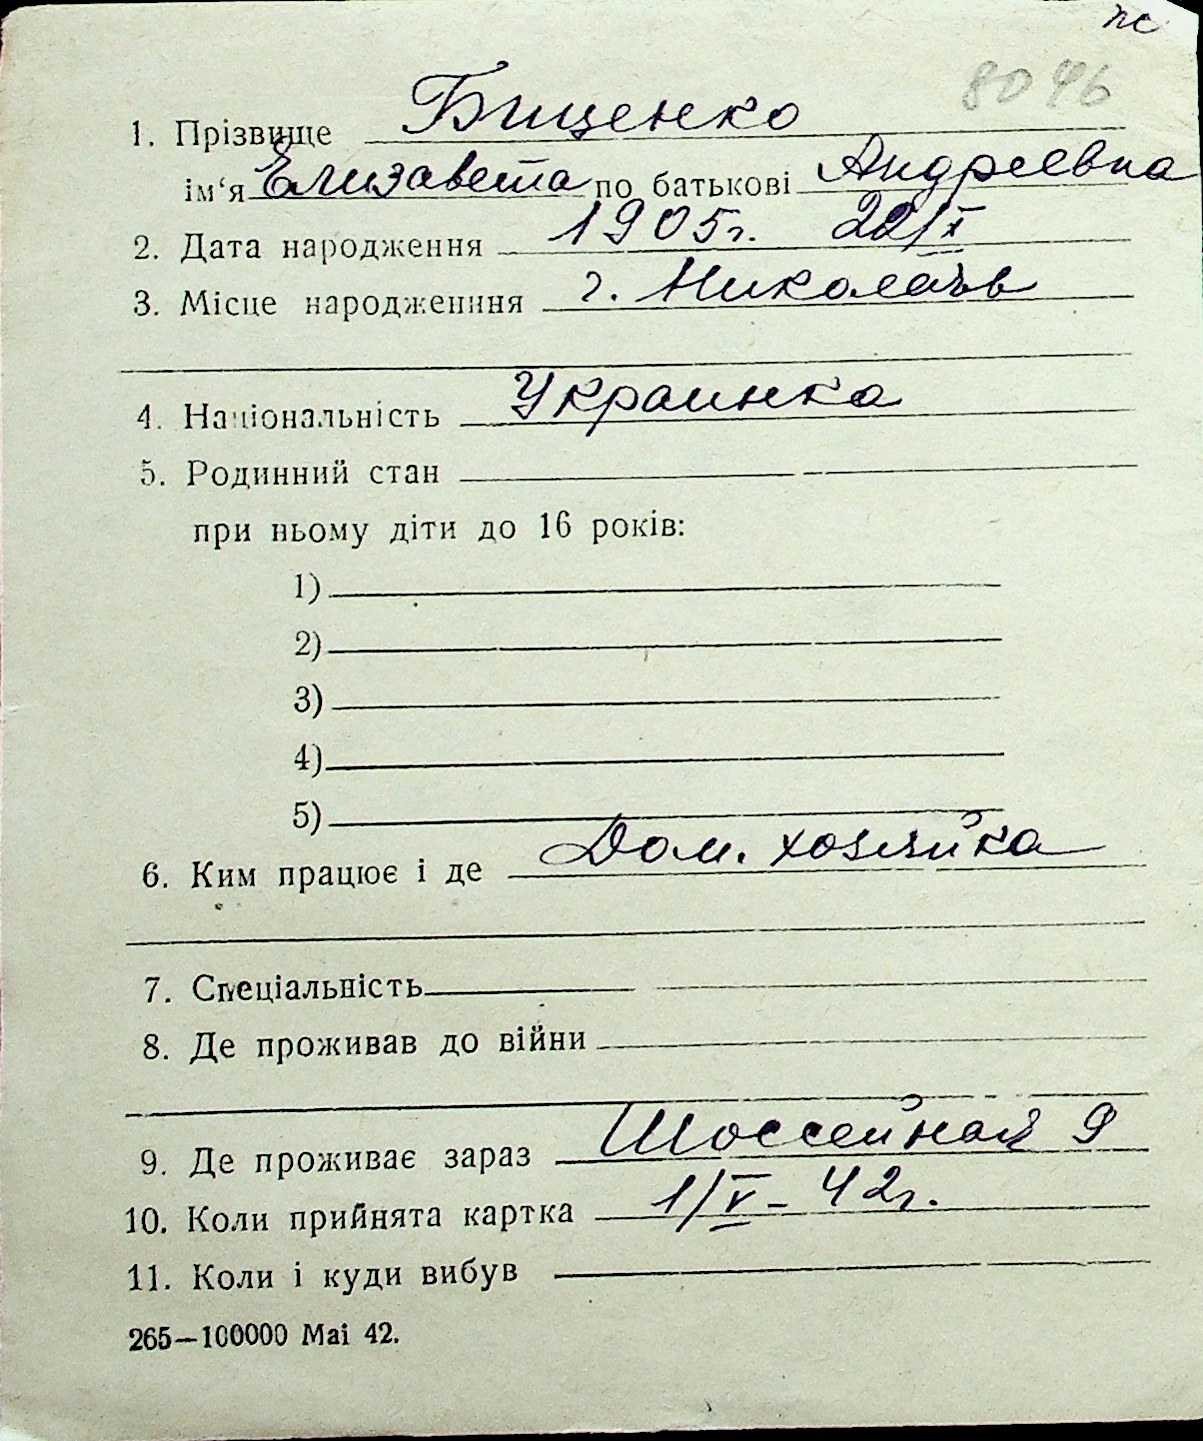 пс
8046
1. Прізвище Биценко
ім‘я Елизавета по батькові Андреевна
2. Дата народження 1905г. 22/X
3. Місце народженння г. Николаев
4. Національність Украинка
5. Родинний стан
при ньому діти до 16 років:
1)
2)
3)
4)
5)
6. Ким працює і де Дом. хозяйка
7. Спеціальність
8. Де проживав до війни
9. Де проживає зараз Шоссейная 9
10. Коли прийнята картка 1/V – 42г.
11. Коли і куди вибув
265—100000 Mai 42.